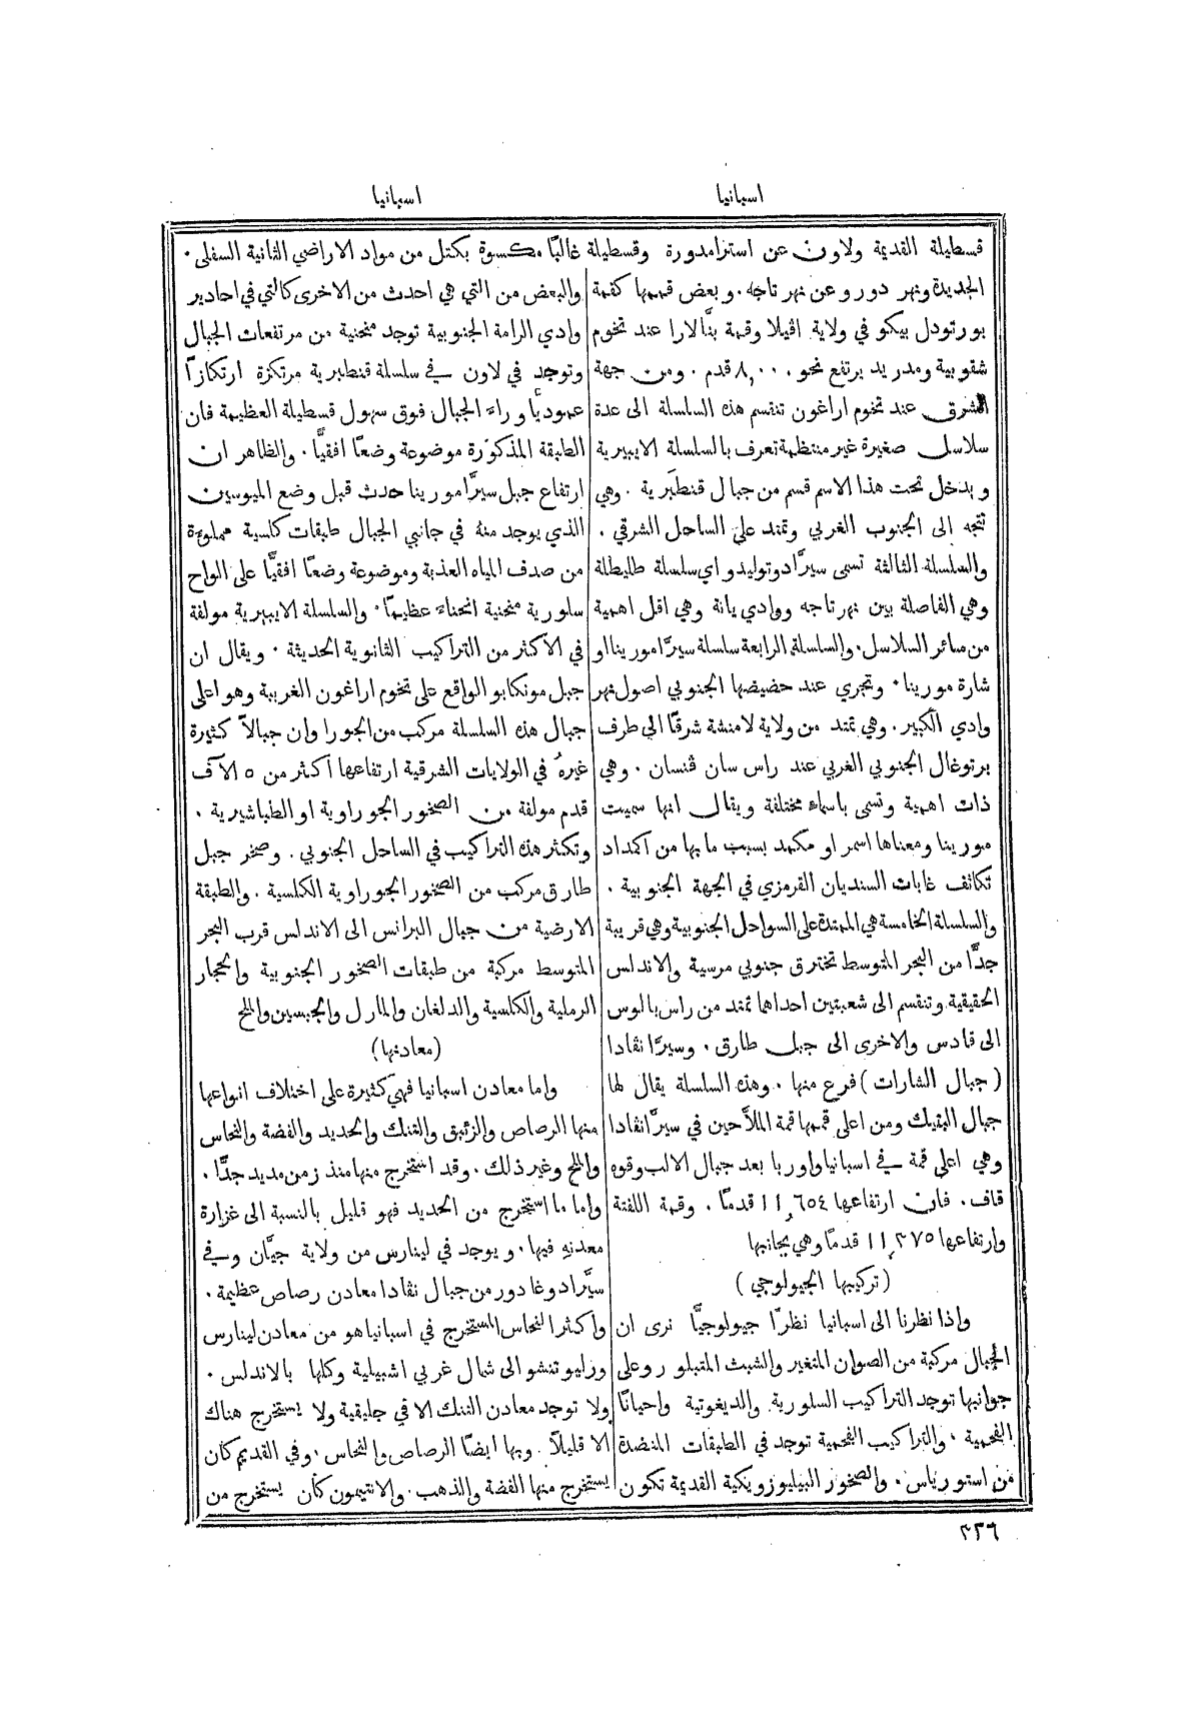 اسبانيا
قسطيلة القديمة ولاون عن استرامدورة وقسطيلة
الجديدة ونهر دورو وعن نهر تاجه. وبعض قممها كقمة
بورتودل بيكو في ولاية اڤيلا وقمة بنّالارا عند تخوم
شقوبية ومدريد يرتفع نحو ٨,٠٠٠ قدم. ومن جهة
الشرق عند تخوم اراغون تنقسم هذه السلسلة الى عدة
سلاسل صغيرة غير منتظمة تعرف بالسلسلة الايبيرية
ويدخل تحت هذا الاسم قسم من جبال قنطبرية. وهي
تتجه الى الجنوب الغربي وتمتد على الساحل الشرقي.
والسلسلة الثالثة تسمى سيرّا دو توليدو اي سلسلة طليطلة
وهي الفاصلة بين نهر تاجه ووادي يانة وهي اقل اهمية
من سائر السلاسل. والسلسلة الرابعة سلسلة سيرّا مورينا او
شارة مورينا. وتجري عند حضيضها الجنوبي اصول نهر
وادي الكبير. وهي تمتد من ولاية لامنشة شرقًا الى طرف
برتوغال الجنوبي الغربي عند راس سان ڤنسان. وهي
ذات اهمية وتسمى باسماء مختلفة ويقال انها سميت
مورينا ومعناها اسمر او مكمد بسبب ما بها من اكمداد
تكاثف غابات السنديان القرمزي في الجهة الجنوبية.
والسلسلة الخامسة هي الممتدة على السواحل الجنوبية وهي قريبة
جدًّا من البحر المتوسط تخترق جنوبي مرسية والاندلس
الحقيقية وتنقسم الى شعبتين احداهما تمتد من راس بالوس
الى قادس والاخرى الى جبل طارق. وسيرّا نڤادا
(جبال الشارات) فرع منها. وهذه السلسلة يقال لها
جبال البتيك ومن اعلى قممها قمة الملاّحين في سيرّا نڤادا
وهي اعلى قمة في اسبانيا واوربا بعد جبال الالب وقوه
قاف. فان ارتفاعها ١١,٦٥٤ قدمًا. وقمة اللفتة
وارتفاعها ١١,٣٧٥ قدمًا وهي بجانبها
(تركيبها الجيولوجي)
واذا نظرنا الى اسبانيا نظرًا جيولوجيًّا نرى ان
الجبال مركبة من الصوان المتغير والشيث المتبلور وعلى
جوانبها توجد التراكيب السلورية والديغوتية واحيانًا
الفحمية. والتراكيب الفحمية توجد في الطبقات المنضدة
من استورياس. والصخور البيليوزويكية القديمة تكون
اسبانيا
غالبًا مكسوة بكتل من مواد الاراضي الثانية السفلى.
والبعض من التي هي احدث من الاخرى كالتي في احادير
وادي الرامة الجنوبية توجد منحنية من مرتفعات الجبال
وتوجد في لاون في سلسلة قنطبرية مرتكزة ارتكازًا
عموديًّا وراء الجبال فوق سهول قسطيلة العظيمة فان
الطبقة المذكورة موضوعة وضعًا افقيًّا. والظاهر ان
ارتفاع جبل سيرّا مورينا حدث قبل وضع الميوسين
الذي يوجد منهُ في جانبي الجبال طبقات كلسية مملوءة
من صدف المياه العذبة وموضوعة وضعًا افقيًّا على الواح
سلورية منحنية انحناءً عظيمًا. والسلسلة الايبيرية مولفة
في الاكثر من التراكيب الثانوية الحديثة. ويقال ان
جبل مونكابو الواقع على تخوم اراغون الغربية وهو اعلى
جبال هذه السلسلة مركب من الجورا وان جبالاً كثيرة
غيرهُ في الولايات الشرقية ارتفاعها اكثر من ٥ الآف
قدم مولفة من الصخور الجوراوية او الطباشيرية.
وتكثر هذه التراكيب في الساحل الجنوبي. وصخر جبل
طارق مركب من الصخور الجوراوية الكلسية. والطبقة
الارضية من جبال البرانس الى الاندلس قرب البحر
المتوسط مركبة من طبقات الصخور الجنوبية والحجار
الرملية والكلسية والدلغان والمارل والجبسين والملح
(معادنها)
واما معادن اسبانيا فهي كثيرة على اختلاف انواعها
منها الرصاص والزئبق والتنك والحديد والفضة والنحاس
والملح وغير ذلك. وقد استخرج منها منذ زمن مديد جدًّا.
واما ما استخرج من الحديد فهو قليل بالنسبة الى غزارة
معدنهِ فيها. ويوجد في لينارس من ولاية جيّان وفي
سيّرا دو غادور من جبال نڤادا معادن رصاص عظيمة.
واكثر النحاس المستخرج في اسبانيا هو من معادن لينارس
وريوتنتو الى شمال غربي اشبيلية وكلها بالاندلس.
ولا توجد معادن التنك الا في جليقية ولا يستخرج هناك
الا قليلاً. وبها ايضًا الرصاص والنحاس. وفي القديم كان
يستخرج منها الفضة والذهب. والانتيمون كان يستخرج من
٣٢٦